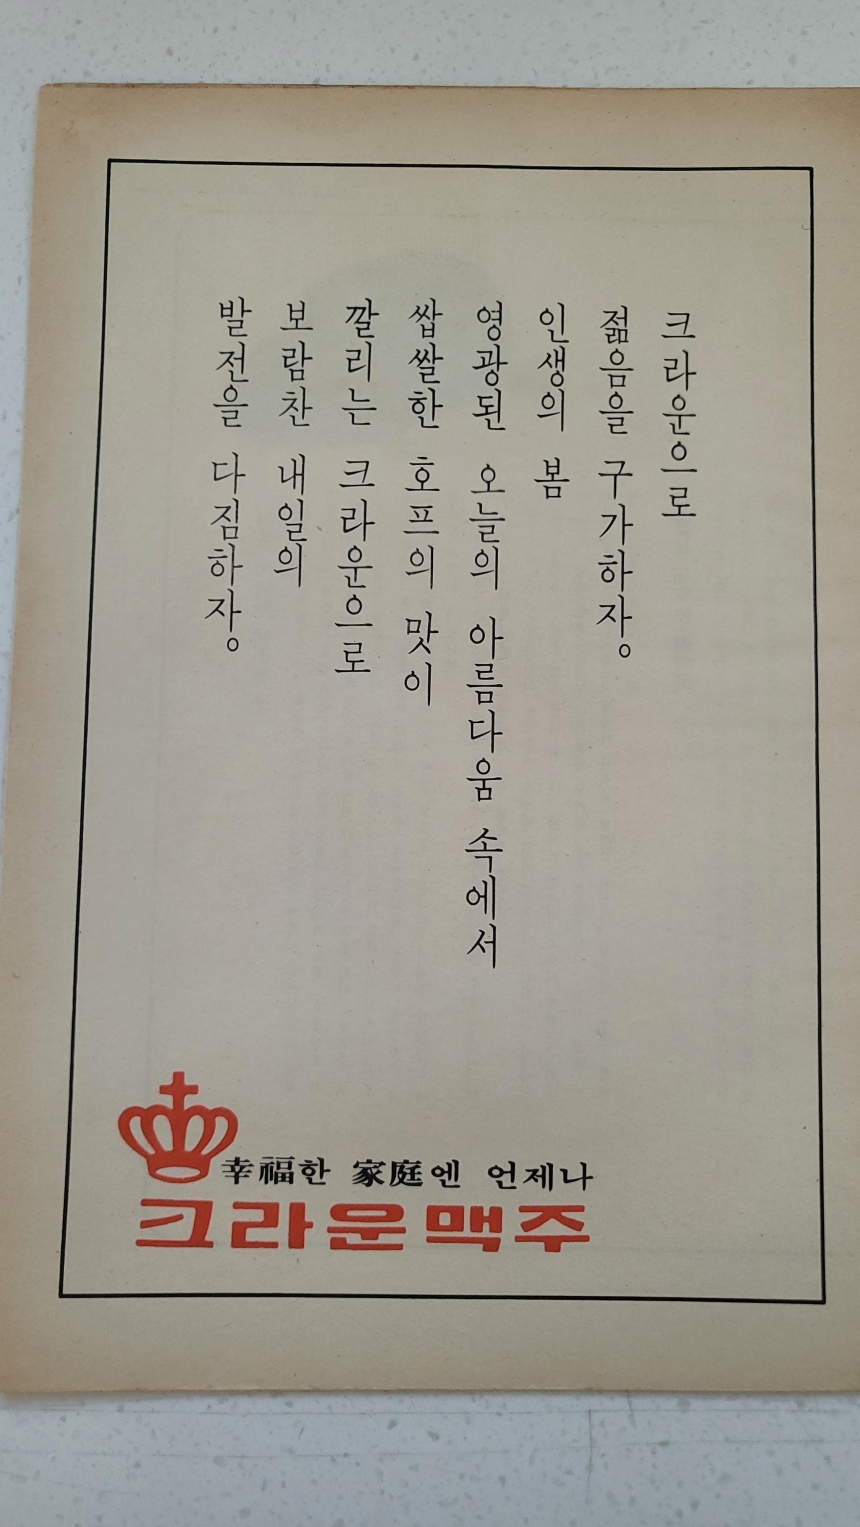 크라운으로
젊음을 구가하자。
인생의 봄
영광된 오늘의 아름다움 속에서
쌉쌀한 호프의 맛이
깔리는 크라운으로
보람찬 내일의
발전을 다짐하자。
幸福한 家庭엔 언제나
크라운맥주